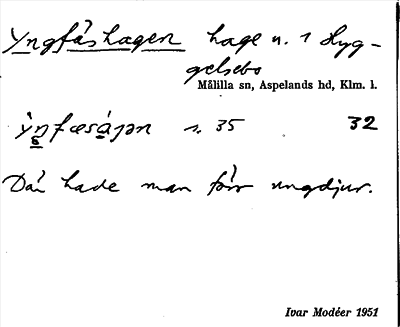 Yngfäshagen hage n. 1 Hyg-
gelsebo
Målilla sn, Aspelands hd, Klm. l.
s. 35 32
Där hade man förr ungdjur.
Ivar Modéer 1951